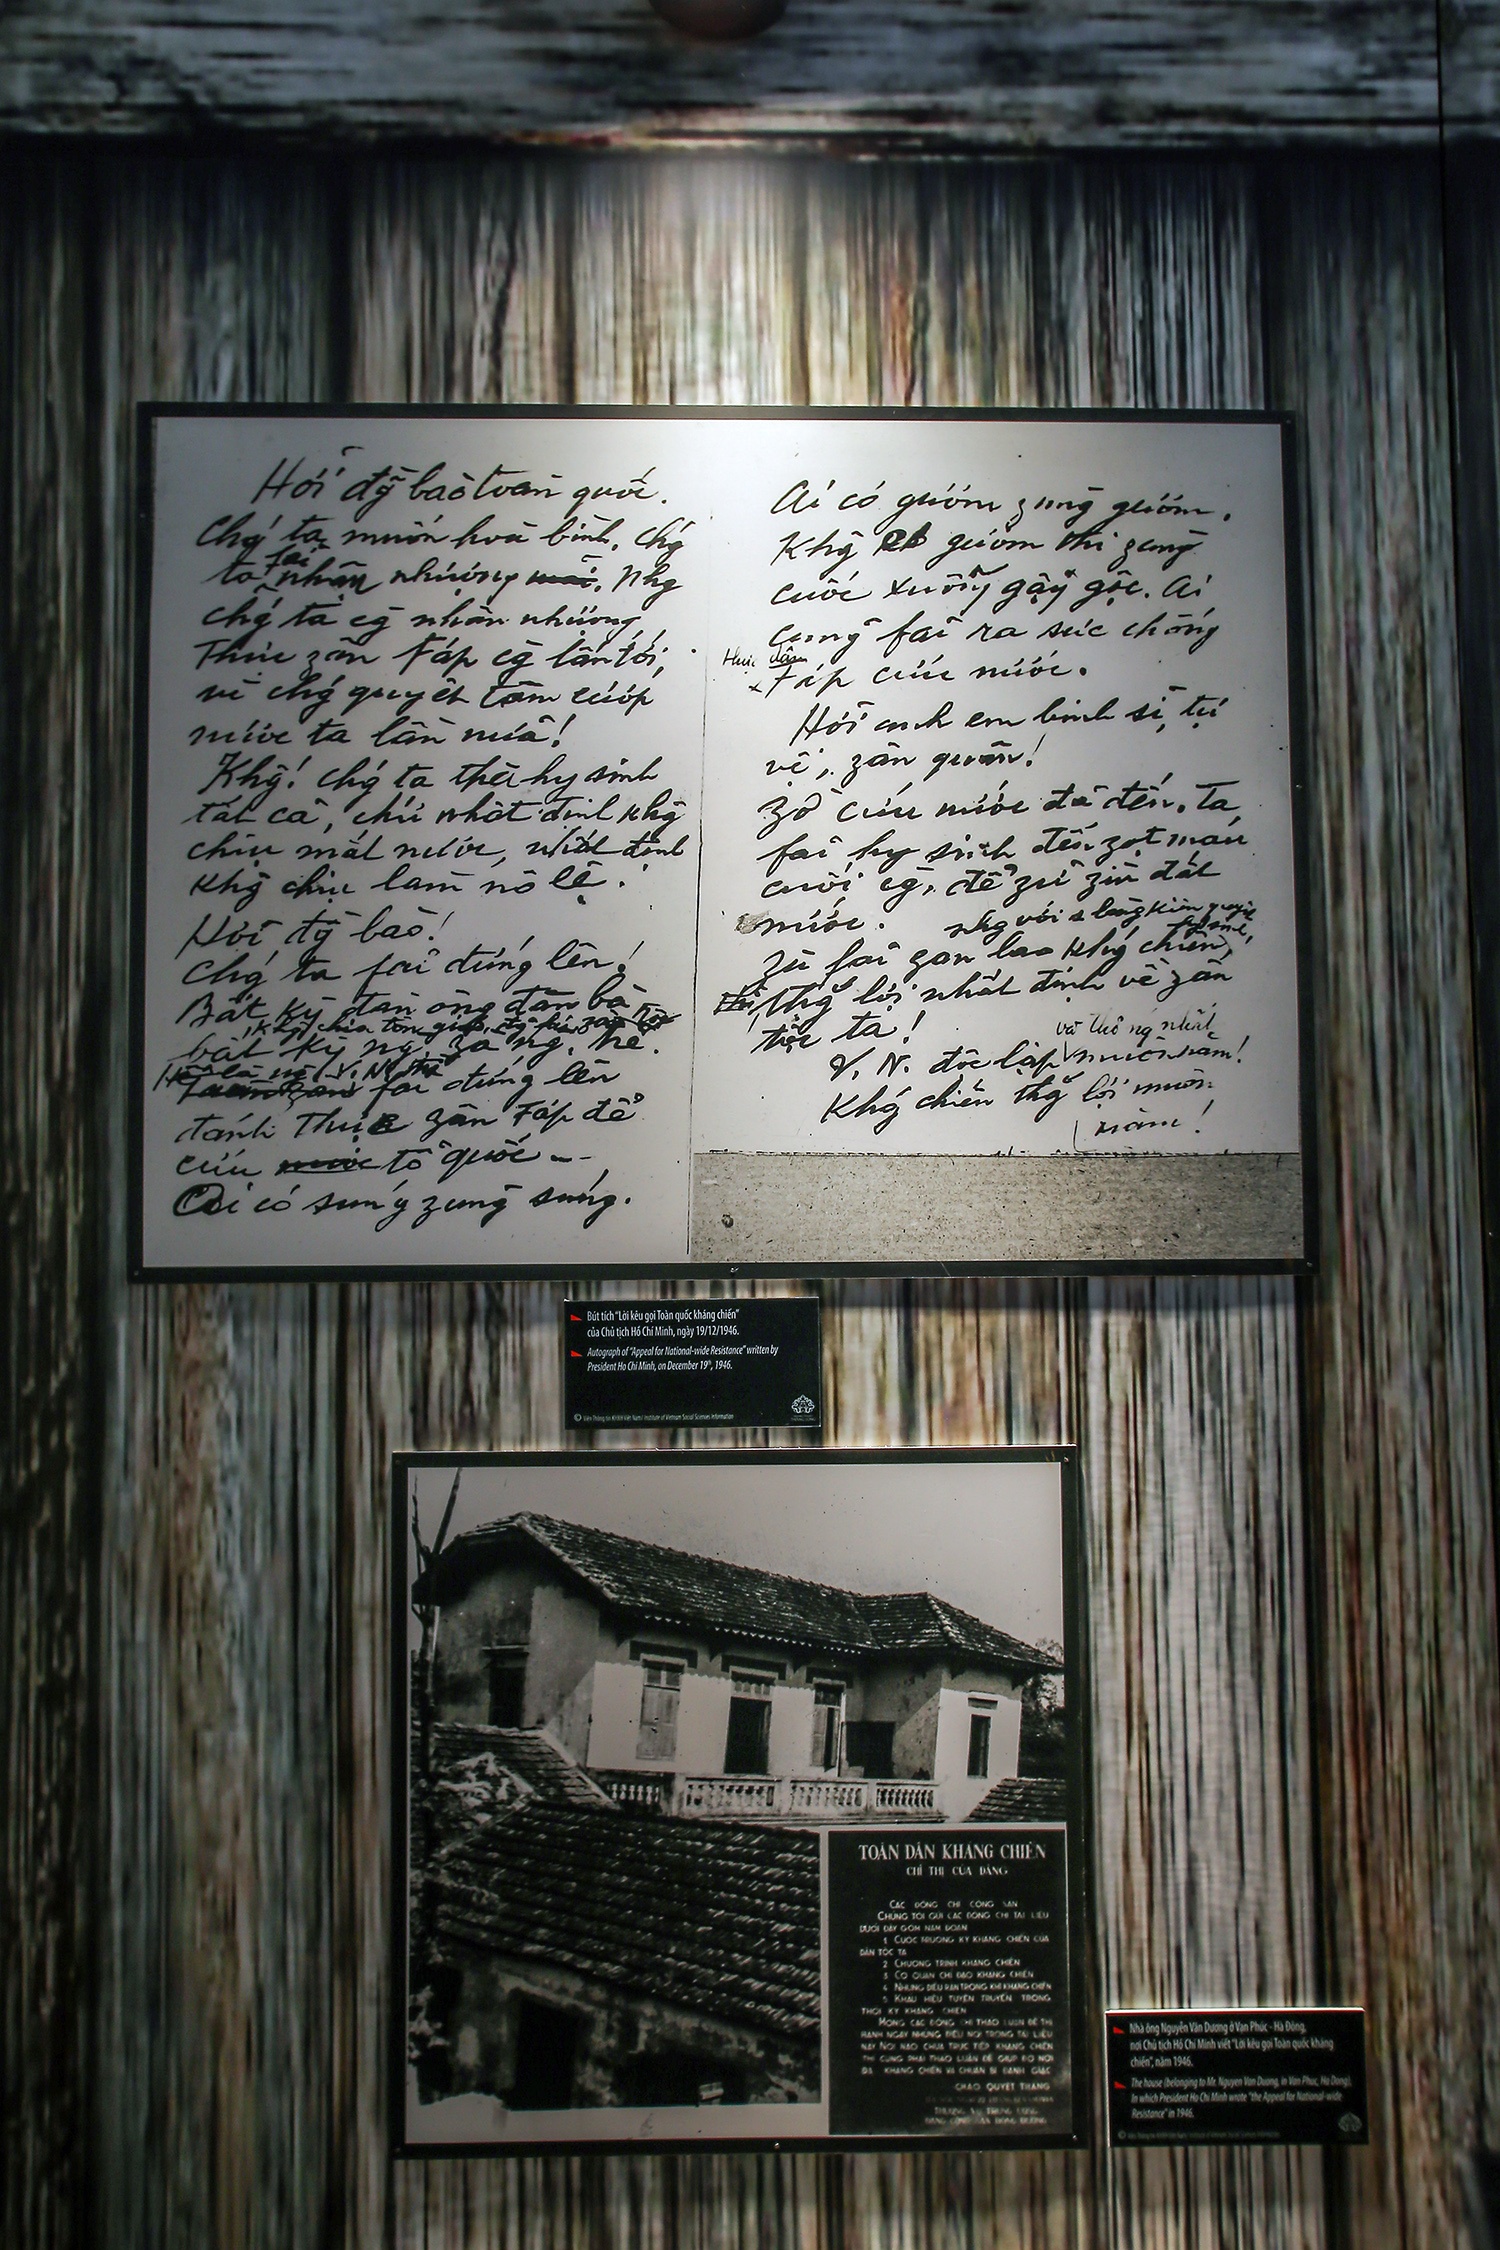 Hỡi đg̀ bào toàn quốc.
Chǵ ta muốn hoà bình, chǵ
ta fải nhân nhượng. Nhg
chǵ ta cg̀ nhân nhượng
Thực zân Fáp cg̀ lấn tới,
vì chǵ quyết tâm cướp
nước ta lần nữa!
Khĝ! chǵ ta thà hy sinh
tất cả, chứ nhất định khĝ
chịu mất nước, nhất định
khĝ chịu làm nô lệ.
Hỡi đg̀ bào!
Chǵ ta fải đứng lên!
Bất kỳ đàn ông đàn bà
bất kỳ ng. za ng. trẻ.
Hễ là ng. V.N. thì
fải đứng lên
đánh Thực zân Fáp để
cứu tổ quốc --
Ai có súng zùng súng.
Ai có gươm zùng gươm,
Khĝ có gươm thì zùng
cuốc xuổng gậy gộc. Ai
cũng fải ra sức chống
thực dân
Fáp cứu nước.
Hỡi anh em binh sĩ, tự
vệ, zân quân!
Zờ cứu nước đã đến. Ta
fải hy sinh đến zọt máu
cuối cg̀, để zữ zìn đất
nước.
Zù fải zan lao khǵ chiến,
nhg với 1 lòng kiên quyết
hy sinh,
thğ́ lợi nhất định về zân
tộc ta!
V. N. độc lập và thống nhất
muôn năm!
Khǵ chiến thğ́ lợi muôn
năm!
Bút tích "Lời kêu gọi Toàn quốc kháng chiến"
của Chủ tịch Hồ Chí Minh, ngày 19/12/1946.
Autograph of "Appeal for National-wide Resistance" written by
President Ho Chi Minh, on December 19th, 1946.
© Viện Thông tin KHXH Việt Nam/ Institute of Vietnam Social Sciences Information
TOÀN DÂN KHÁNG CHIẾN
CHỈ THỊ CỦA ĐẢNG
CÁC ĐỒNG CHÍ CỘNG SẢN
CHÚNG TÔI GỬI CÁC ĐỒNG CHÍ TÀI LIỆU
DƯỚI ĐÂY GỒM NĂM ĐOẠN
1 CUỘC TRƯỜNG KỲ KHÁNG CHIẾN CỦA
DÂN TỘC TA
2 CHƯƠNG TRÌNH KHÁNG CHIẾN
3 CƠ QUAN CHỈ ĐẠO KHÁNG CHIẾN
4 NHỮNG ĐIỀU RĂN TRONG KHI KHÁNG CHIẾN
5 KHẨU HIỆU TUYÊN TRUYỀN TRONG
THỜI KỲ KHÁNG CHIẾN
MONG CÁC ĐỒNG CHÍ THẢO LUẬN ĐỂ THI
HÀNH NGAY NHỮNG ĐIỀU NÓI TRONG TÀI LIỆU
NÀY NƠI NÀO CHƯA TRỰC TIẾP KHÁNG CHIẾN
THÌ CŨNG PHẢI THẢO LUẬN ĐỂ GIÚP ĐỠ NƠI
ĐÃ KHÁNG CHIẾN VÀ CHUẨN BỊ ĐÁNH GIẶC
CHÀO QUYẾT THẮNG
THƯỜNG VỤ TRUNG ƯƠNG
ĐẢNG CỘNG SẢN ĐÔNG DƯƠNG
Nhà ông Nguyễn Văn Dương ở Vạn Phúc - Hà Đông,
nơi Chủ tịch Hồ Chí Minh viết "Lời kêu gọi Toàn quốc kháng
chiến", năm 1946.
The house (belonging to Mr. Nguyen Van Duong, in Van Phuc, Ha Dong),
in which President Ho Chi Minh wrote "the Appeal for National-wide
Resistance" in 1946.